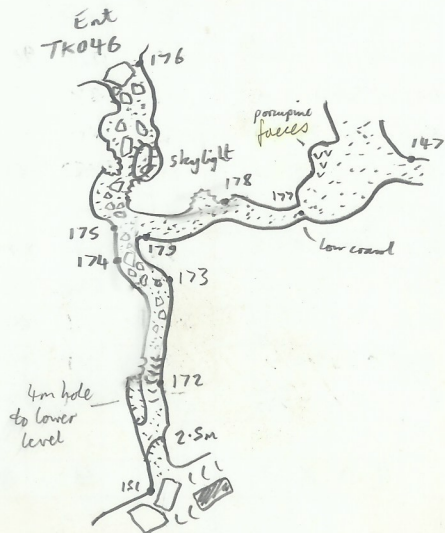 Ent
TK046
176
porcupine
faeces
147
skylight
178
177
175
179
low crawl
174
173
172
4m hole
to lower
level
2.5m
151